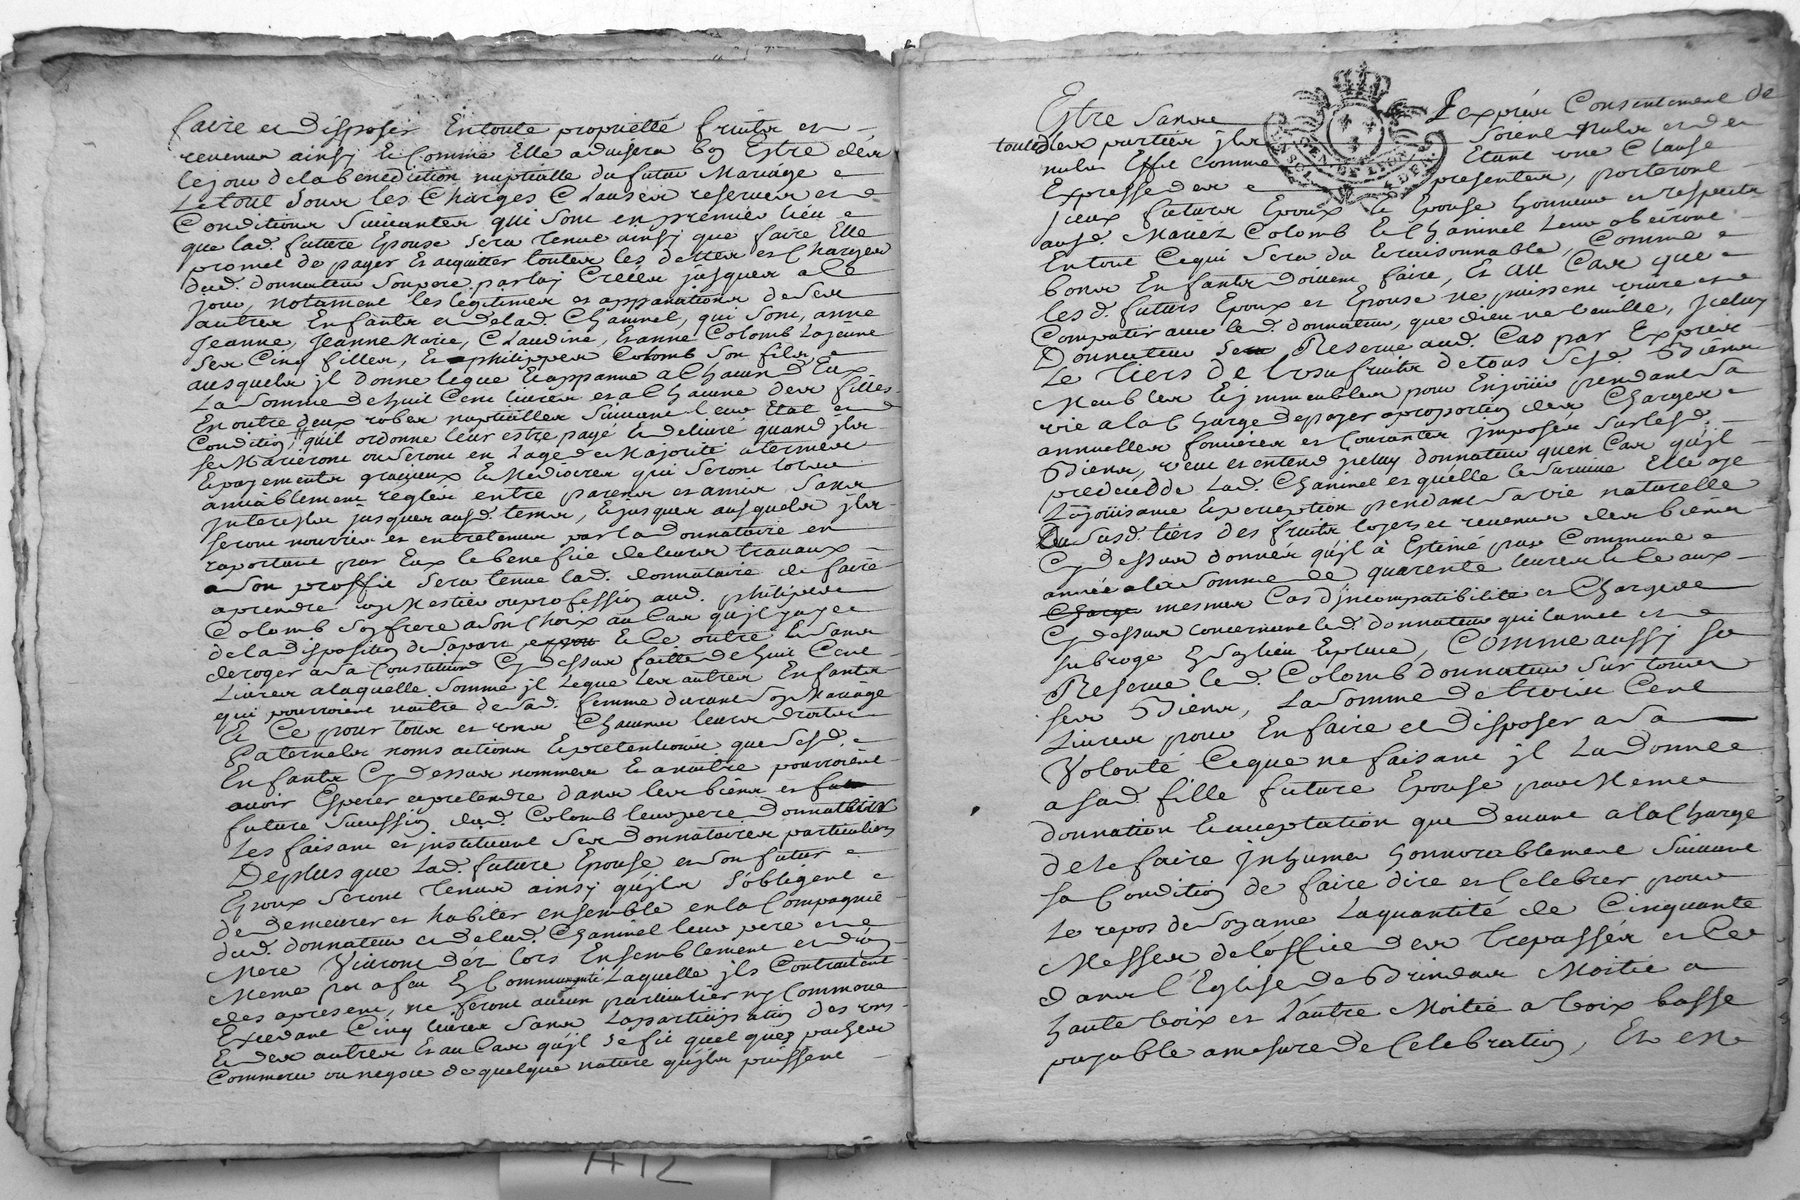 faire et disposer En toute proprietté fruits et
revenus ainsi Et Comme Elle advisera bon Estre des
le jour de la benediction nuptialle du futur Mariage
Le tout sous les Charges Clauses reserves et
Conditions suivantes qui sont en premier lieu
que lad. future Epouse sera tenue ainsi que faire Elle
promet de payer Et acquitter toutes les dettes et Charges
dud. donnateur son pere par luy Créées jusques a Ce
jour, notament les legitimes et appanations de ses
autres Enfants et de lad. Chaninel, qui sont, anne
Jeanne, Jeanne Marie, Claudine, Et anne Colomb Lajeune
ses Cinq filles, Et philippes Colomb son fils,
ausquels jl donne legue Et appanne a Chacun d'Eux
La somme de huit Cent livres et a Chacune des filles
En outre deux robes nuptialles suivant leur Etat et
Condition, qu'il ordonne leur estre payé Et delivré quand jls
se Marieront ou seront en L'age de Majorité a termes
Et payements gracieux Et Mediocres qui seront lors
amiablement reglés entre parens et amis sans
Interests jusques ausd. tems, Et jusques ausquels jls
seront nourris et entretenus par la donnataire en
raportant par Eux le benefice de leurs travaux
a son proffit sera tenue lad. donnataire de faire
aprendre un Mestier ou profession aud. philippes
Colomb son frere a son Choix au Cas qu'jl
de la disposition de sa part Et Ce outre Et sans
deroger a sa Constitution Cy dessus faitte de huit Cent
Livres a laquelle somme jl legue Les autres Enfants
qui pourroient naitre de sad. femme durant son Mariage
Et Ce pour tous et uns Chacuns leurs droits
Paternels noms actions Et pretentions que sesd.
Enfants Cy dessus nommés Et a naitre pourroient
avoir Esperer et pretendre dans les biens et
future succession dud. Colomb leur pere donnateur
Les faisant et jnstituant ses donnataires particuliers
De plus que Lad. future Epouse et son futur
Epoux seront tenus ainsi qu'jls s'obligent
de demeurer et habiter ensemble en la Compagnie
dud. donnateur et de lad. Chaninel leur pere et
Mere Vivront des lors Ensemblement et d'un
Meme pot a feu En Communauté Laquelle jls Contractent
des apresent, ne feront aucun particulier ny Commerce
Excedant Cinq livres sans La participation des uns
Et des autres Et au Cas qu'jl se fit quelques pachés
Commerce ou negoce de quelque nature qu'jls puissent
Estre sans L'exprès Consentement de
toutes les parties jls Seront nuls et de
nul Effet Comme Etant une Clause
Expresse des presentes, porteront
Jceux futurs Epoux Et Epouse honneur et respects
ausd. Mariés Colomb Et Chaninel Leur obeiront
En tout Ce qui sera du Et raisonnable, Comme
bons Enfants doivent faire, Et au Cas que
les d. futurs Epoux et Epouse ne puissent vivre et
Compatir avec led. donnateur, que dieu ne veuille, jceluy
Donnateur se Reserve aud. Cas par Exprès
Le Tiers de L'usufruits de tous ses d. Biens
Meubles Et jmmeubles pour En jouir pendant sa
vie a la Charge de payer a proportion des Charges
annuelles foncieres et Courantes jmposés sur lesd.
Biens, veut et entend jceluy donnateur qu'en Cas qu'il
predecedde Lad. Chaninel et qu'elle le survive Elle aye
La jouissance Et perception pendant sa vie naturelle
Du susd. tiers des fruits loyers et revenus des biens
Cy dessus donnés qu'jl à Estimé par Commune
année a la somme de quarente livres Et Ce aux
mesmes Cas d'jncompatibilité et Charges
Cy dessus concernant led. donnateur qui la met et
subroge En son lieu Et place, Comme aussi se
Reserve led. Colomb donnateur sur tous
ses Biens, La somme de trois Cent
Livres pour En faire et disposer a sa
Volonté Ce que ne faisant jl La donne
a sad. fille future Epouse par Meme
donnation Et acceptation que devant a la Charge
de le faire jnhumer honnorablement suivant
sa Condition de faire dire et Celebrer pour
Le repos de son ame La quantité de Cinquante
Messes de l'office des Trepassés et Ce
dans l'Eglise de Brindas Moitié a
haute Voix et L'autre Moitié a Voix basse
payable a mesure de Celebration, Et en
A12